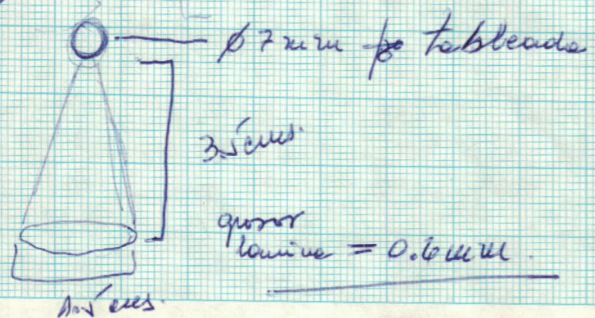 ∅ 7 mm tableada
3.5 cms.
grosor
lamina = 0.6 mm.
1.5 cms.